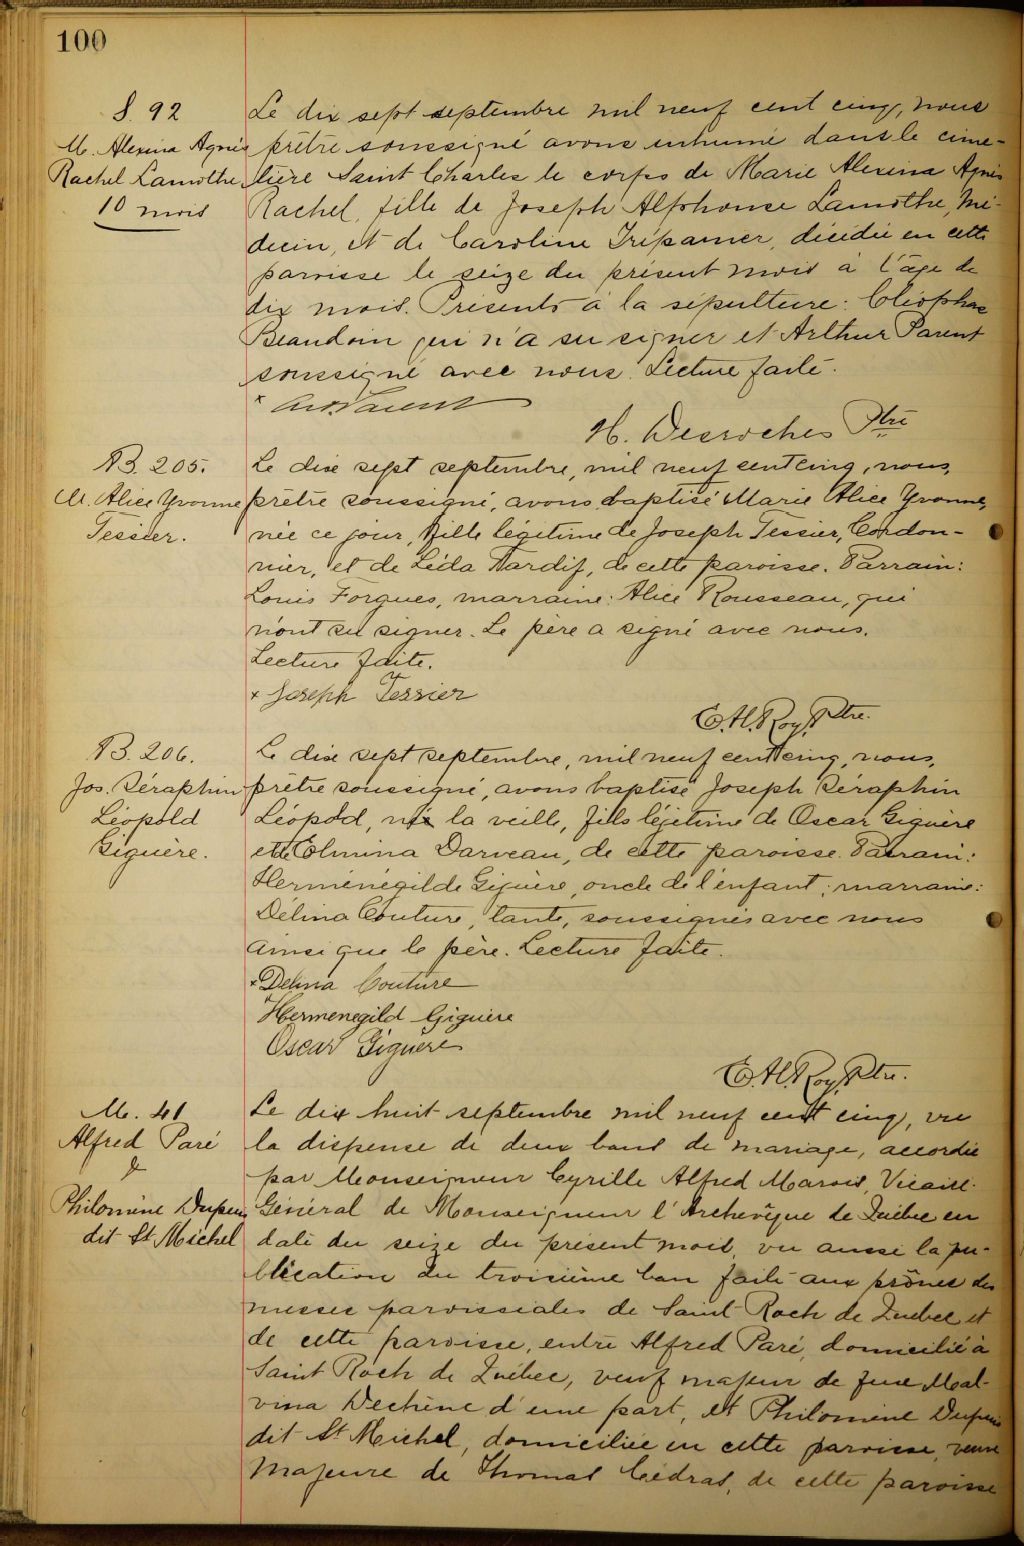 100
S. 92
M. Alexina Agnès
Rachel Lamothe
10 mois
Le dix sept septembre mil neuf cent cinq, nous
prêtre soussigné avons inhumé dans le cime-
tière Saint Charles le corps de Marie Alexina Agnès
Rachel, fille de Joseph Alphonse Lamothe, mé-
decin, et de Caroline Trépanier, décédée en cette
paroisse le seize du présent mois à l'âge de
dix mois. Présents à la sépulture: Cléophas
Beaudoin qui n'a su signer et Arthur Parent
soussigné avec nous. Lecture faite.
x Art. Parent
H. Desroches Ptre
B. 205.
M. Alice Yvonne
Tessier.
Le dix sept septembre, mil neuf cent cinq, nous,
prêtre soussigné, avons baptisé Marie Alice Yvonne,
née ce jour, fille légitime de Joseph Tessier, Cordon-
nier, et de Léda Tardif, de cette paroisse. Parrain:
Louis Forgues, marraine: Alice Rousseau, qui
n'ont su signer. Le père a signé avec nous.
Lecture faite.
x Joseph Tessier
E. H. Roy, Ptre.
B. 206.
Jos. Séraphin
Léopold
Giguère.
Le dix sept septembre, mil neuf cent cinq, nous,
prêtre soussigné, avons baptisé Joseph Séraphin
Léopold, né la veille, fils légitime de Oscar Giguère
et de Elmina Darveau, de cette paroisse. Parrain:
Herménégilde Giguère, oncle de l'enfant; marraine:
Délina Couture, tante, soussignés avec nous
ainsi que le père. Lecture faite.
x Delina Couture
Hermenegild Giguère
Oscar Giguère
E. H. Roy, Ptre.
M. 41
Alfred Paré
&
Philomène Dupuis
dit St Michel
Le dix huit septembre mil neuf cent cinq, vu
la dispense de deux bans de mariage, accordée
par Monseigneur Cyrille Alfred Marois, Vicaire-
Général de Monseigneur l'Archevêque de Québec en
date du seize du présent mois, vu aussi la pu-
blication du troisième ban faite aux prônes des
messes paroissiales de Saint Roch de Québec et
de cette paroisse, entre Alfred Paré, domicilié à
Saint Roch de Québec, veuf majeur de feue Mal-
vina Dechêne d'une part, et Philomène Dupuis
dit St Michel, domiciliée en cette paroisse, veuve
majeure de Thomas Cédras, de cette paroisse